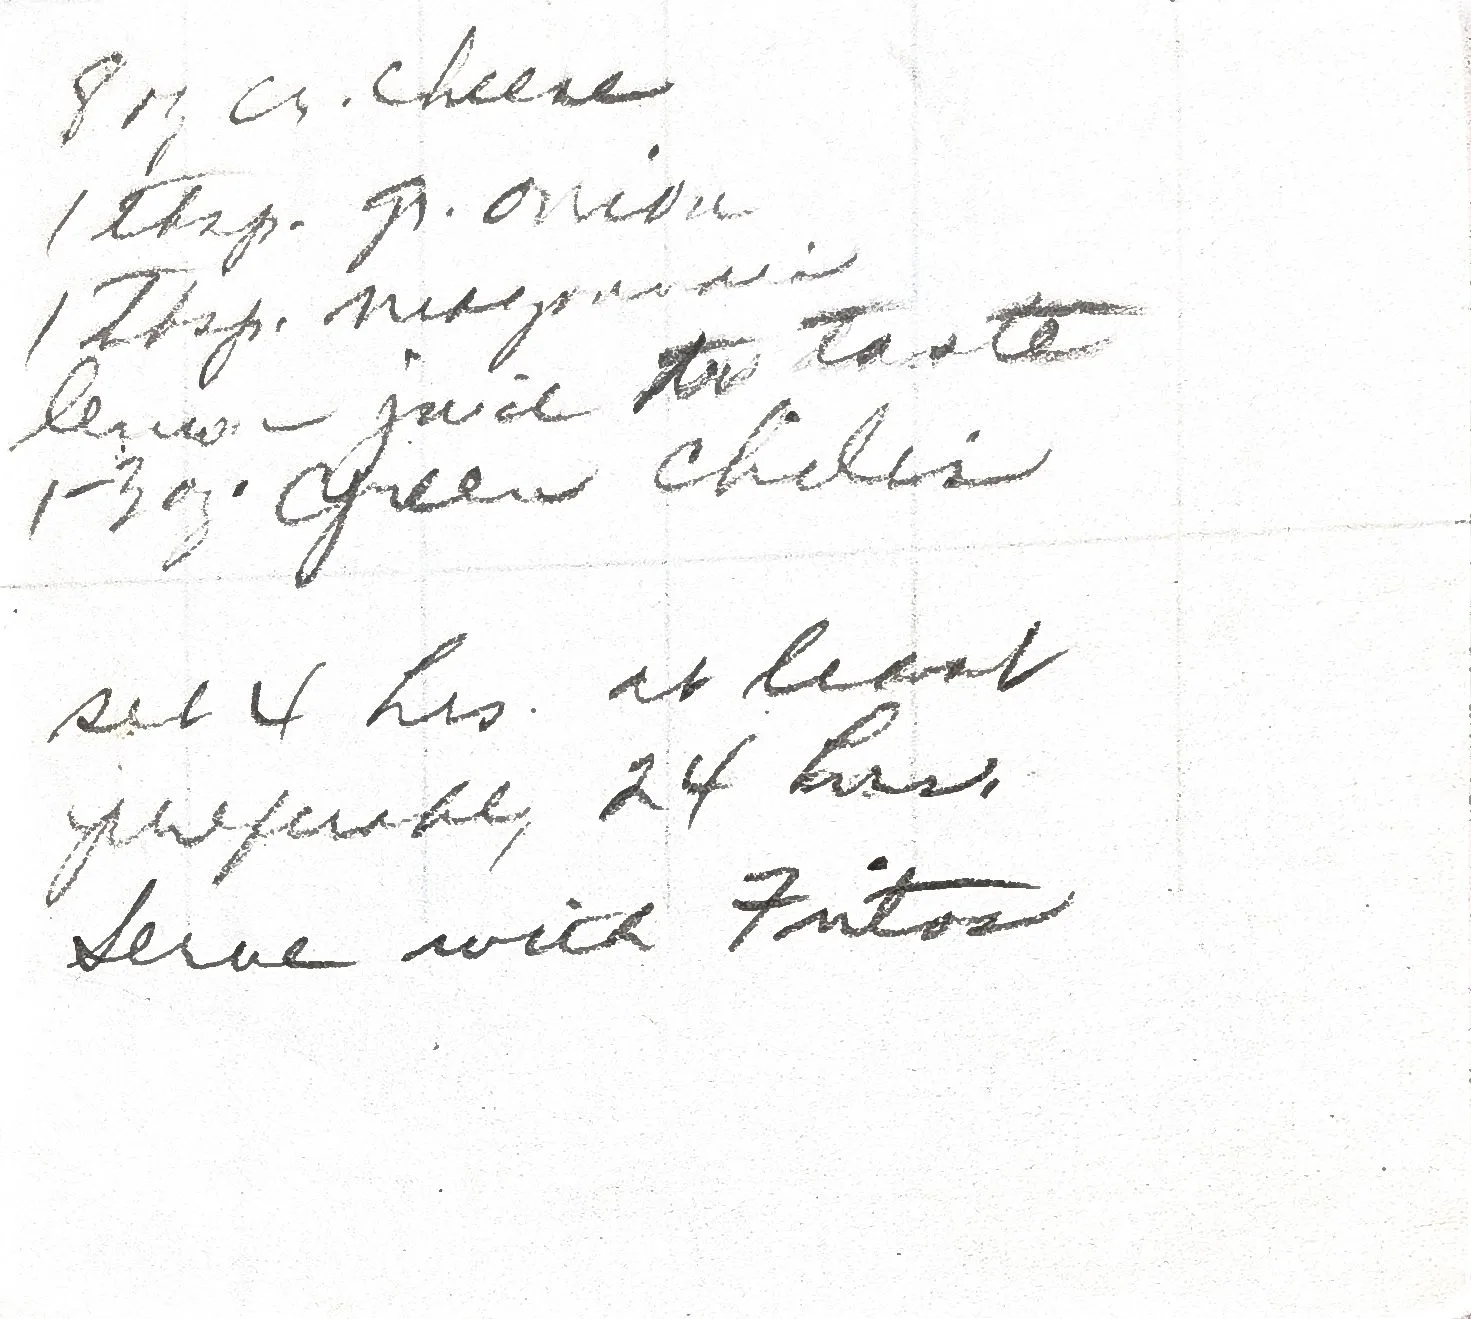 8 oz cr. cheese
1 tbsp. gr. onion
1 Tbsp. mayonnai
lemon juice to taste
1-3 oz. Green Chilis
set 4 hrs. at least
preferably 24 hrs.
Serve with Fritos